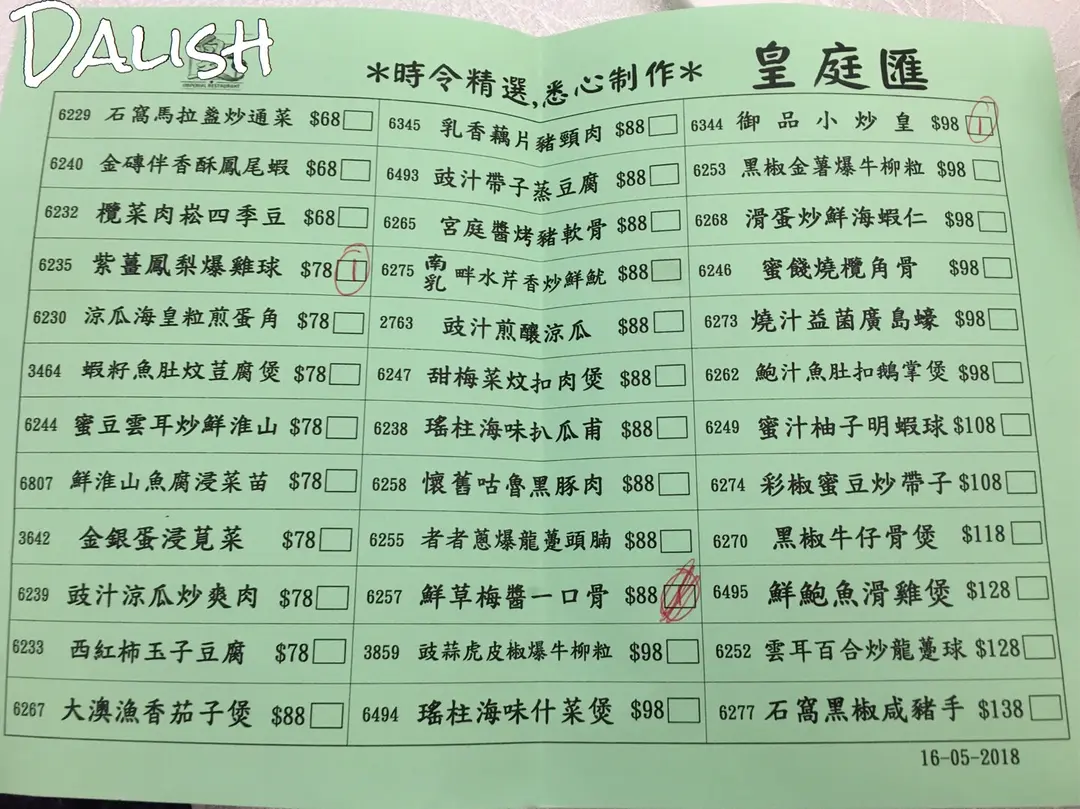 DALISH
IMPERIAL RESTAURANT
*時令精選,悉心制作*
皇庭匯
6229 石窩馬拉盞炒通菜 $68
6240 金磚伴香酥鳳尾蝦 $68
6232 欖菜肉崧四季豆 $68
6235 紫薑鳳梨爆雞球 $78 1
6230 涼瓜海皇粒煎蛋角 $78
3464 蝦籽魚肚炆荳腐煲 $78
6244 蜜豆雲耳炒鮮淮山 $78
6807 鮮淮山魚腐浸菜苗 $78
3642 金銀蛋浸莧菜 $78
6239 豉汁涼瓜炒爽肉 $78
6233 西紅柿玉子豆腐 $78
6267 大澳漁香茄子煲 $88
6345 乳香藕片豬頸肉 $88
6493 豉汁帶子蒸豆腐 $88
6265 宮庭醬烤豬軟骨 $88
6275 南乳 畔水芹香炒鮮魷 $88
2763 豉汁煎釀涼瓜 $88
6247 甜梅菜炆扣肉煲 $88
6238 瑤柱海味扒瓜甫 $88
6258 懷舊咕魯黑豚肉 $88
6255 者者蔥爆龍躉頭腩 $88
6257 鮮草梅醬一口骨 $88
3859 豉蒜虎皮椒爆牛柳粒 $98
6494 瑤柱海味什菜煲 $98
6344 御品小炒皇 $98 1
6253 黑椒金薯爆牛柳粒 $98
6268 滑蛋炒鮮海蝦仁 $98
6246 蜜餞燒欖角骨 $98
6273 燒汁益菌廣島蠔 $98
6262 鮑汁魚肚扣鵝掌煲 $98
6249 蜜汁柚子明蝦球 $108
6274 彩椒蜜豆炒帶子 $108
6270 黑椒牛仔骨煲 $118
6495 鮮鮑魚滑雞煲 $128
6252 雲耳百合炒龍躉球 $128
6277 石窩黑椒咸豬手 $138
16-05-2018